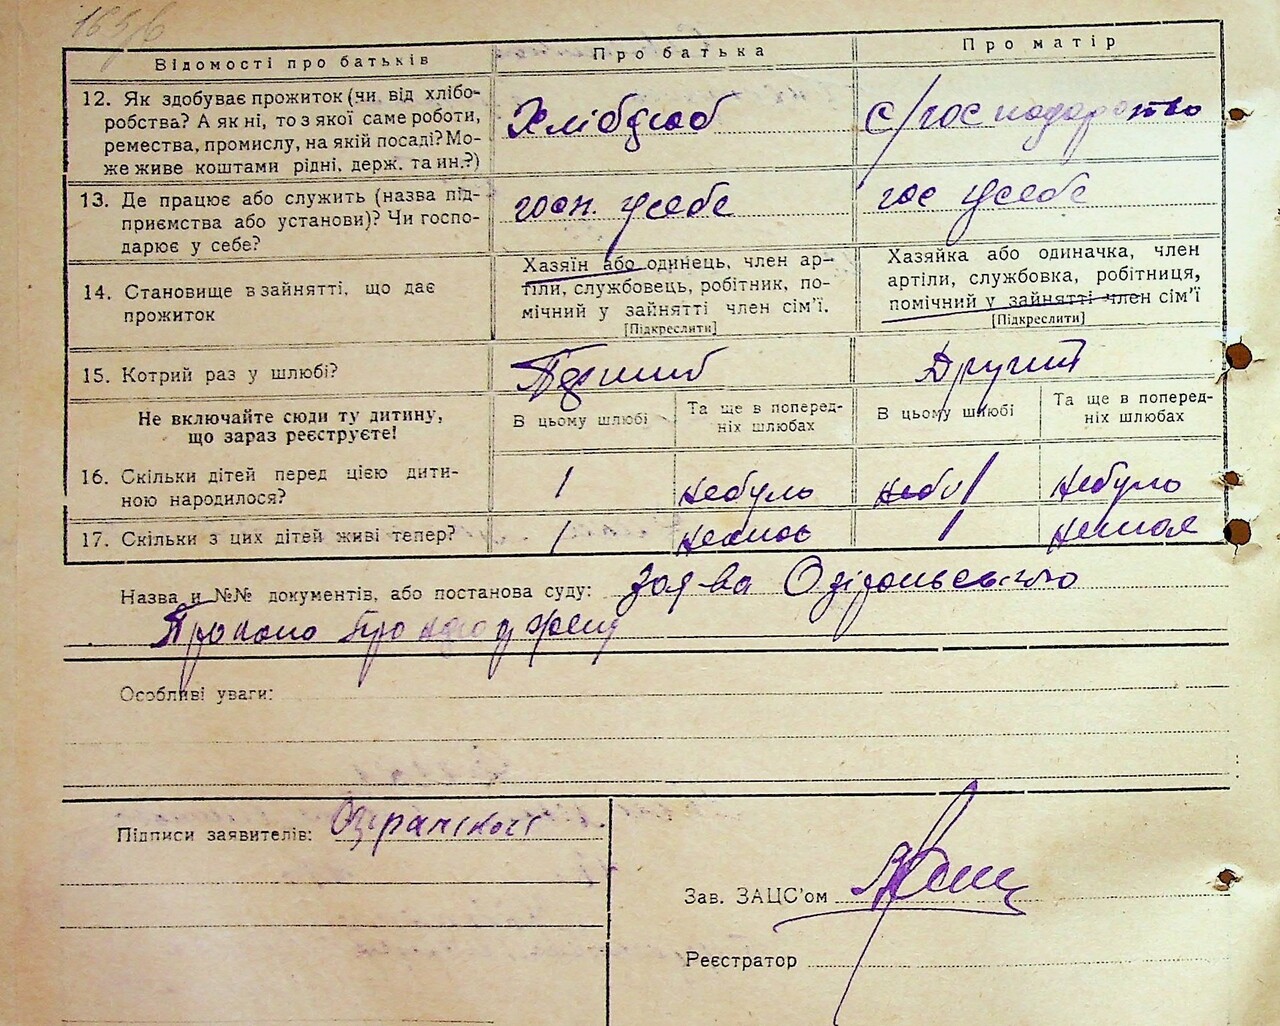 165/6
Відомості про батьків Про батька Про матір
12. Як здобуває прожиток (чи від хлібо-
робства? А як ні, то з якої саме роботи,
ремества, промислу, на якій посаді? Мо-
же живе коштами рідні, держ. та ин.?)
Хлібороб
с/господарство
13. Де працює або служить (назва під-
приємства або установи)? Чи госпо-
дарює у себе?
госп. усебе
гос усебе
14. Становище в зайнятті, що дає
прожиток
Хазяїн або одинець, член ар-
тіли, службовець, робітник, по-
мічний у зайнятті член сім’ї.
[Підкреслити]
Хазяйка або одиначка, член
артіли, службовка, робітниця,
помічний у зайнятті член сім’ї
[Підкреслити]
15. Котрий раз у шлюбі?
Другий
Не включайте сюди ту дитину,
що зараз реєструєте!
В цьому шлюбі
Та ще в поперед-
ніх шлюбах
В цьому шлюбі
Та ще в поперед-
ніх шлюбах
16. Скільки дітей перед цією дити-
ною народилося?
1 небуло 1 небуло
17. Скільки з цих дітей живі тепер?
1 1 немає
Назва и №№ документів, або постанова суду: Заява
про
Особливі уваги:
Підписи заявителів:
Зав. ЗАЦС’ом
Реєстратор